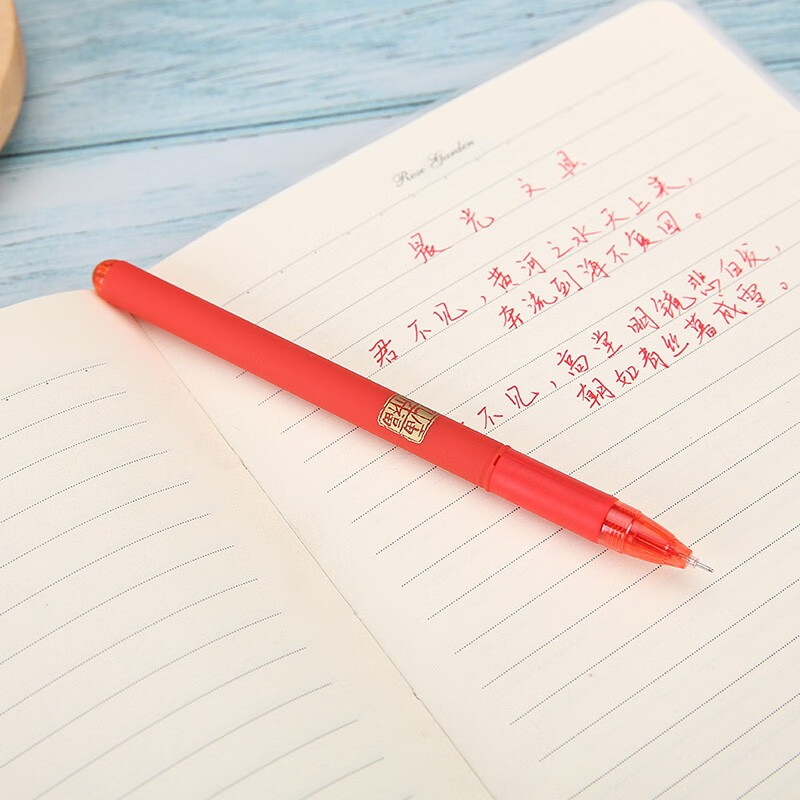 Rose Garden
晨光 文具
君不见，黄河之水天上来，
奔流到海不复回。
不见，高堂明镜悲白发，
朝如青丝暮成雪。